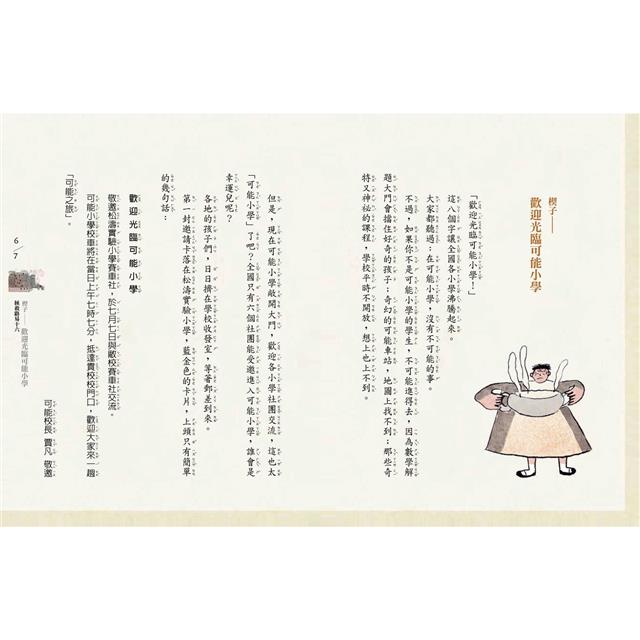 楔子——
歡迎光臨可能小學
「歡迎光臨可能小學！」
這八個字讓全國各小學沸騰起來。
大家都聽過：在可能小學，沒有不可能的事。
不過，如果你不是可能小學的學生，不可能進得去，因為數學解
題大門會擋住好奇的孩子；奇幻的可能車站，地圖上找不到；那些奇
特又神祕的課程，學校平時不開放，想上也上不到。
但是，現在可能小學敞開大門，歡迎各小學社團交流，這也太
「可能小學」了吧？全國只有六個社團能受邀進入可能小學，誰會是
幸運兒呢？
各地的孩子們，日日擠在學校收發室，等著郵差到來。
第一封邀請卡落在松濤實驗小學，藍金色的卡片，上頭只有簡單
的幾句話：
歡迎光臨可能小學
敬邀松濤實驗小學賽車社，於七月七日與敝校賽車社交流。
可能小學校車將在當日上午七時七分，抵達貴校校門口，歡迎大家來一趟
「可能之旅」。
可能校長 賈凡 敬邀
6/7
楔子——歡迎光臨可能小學
拯救路易十六